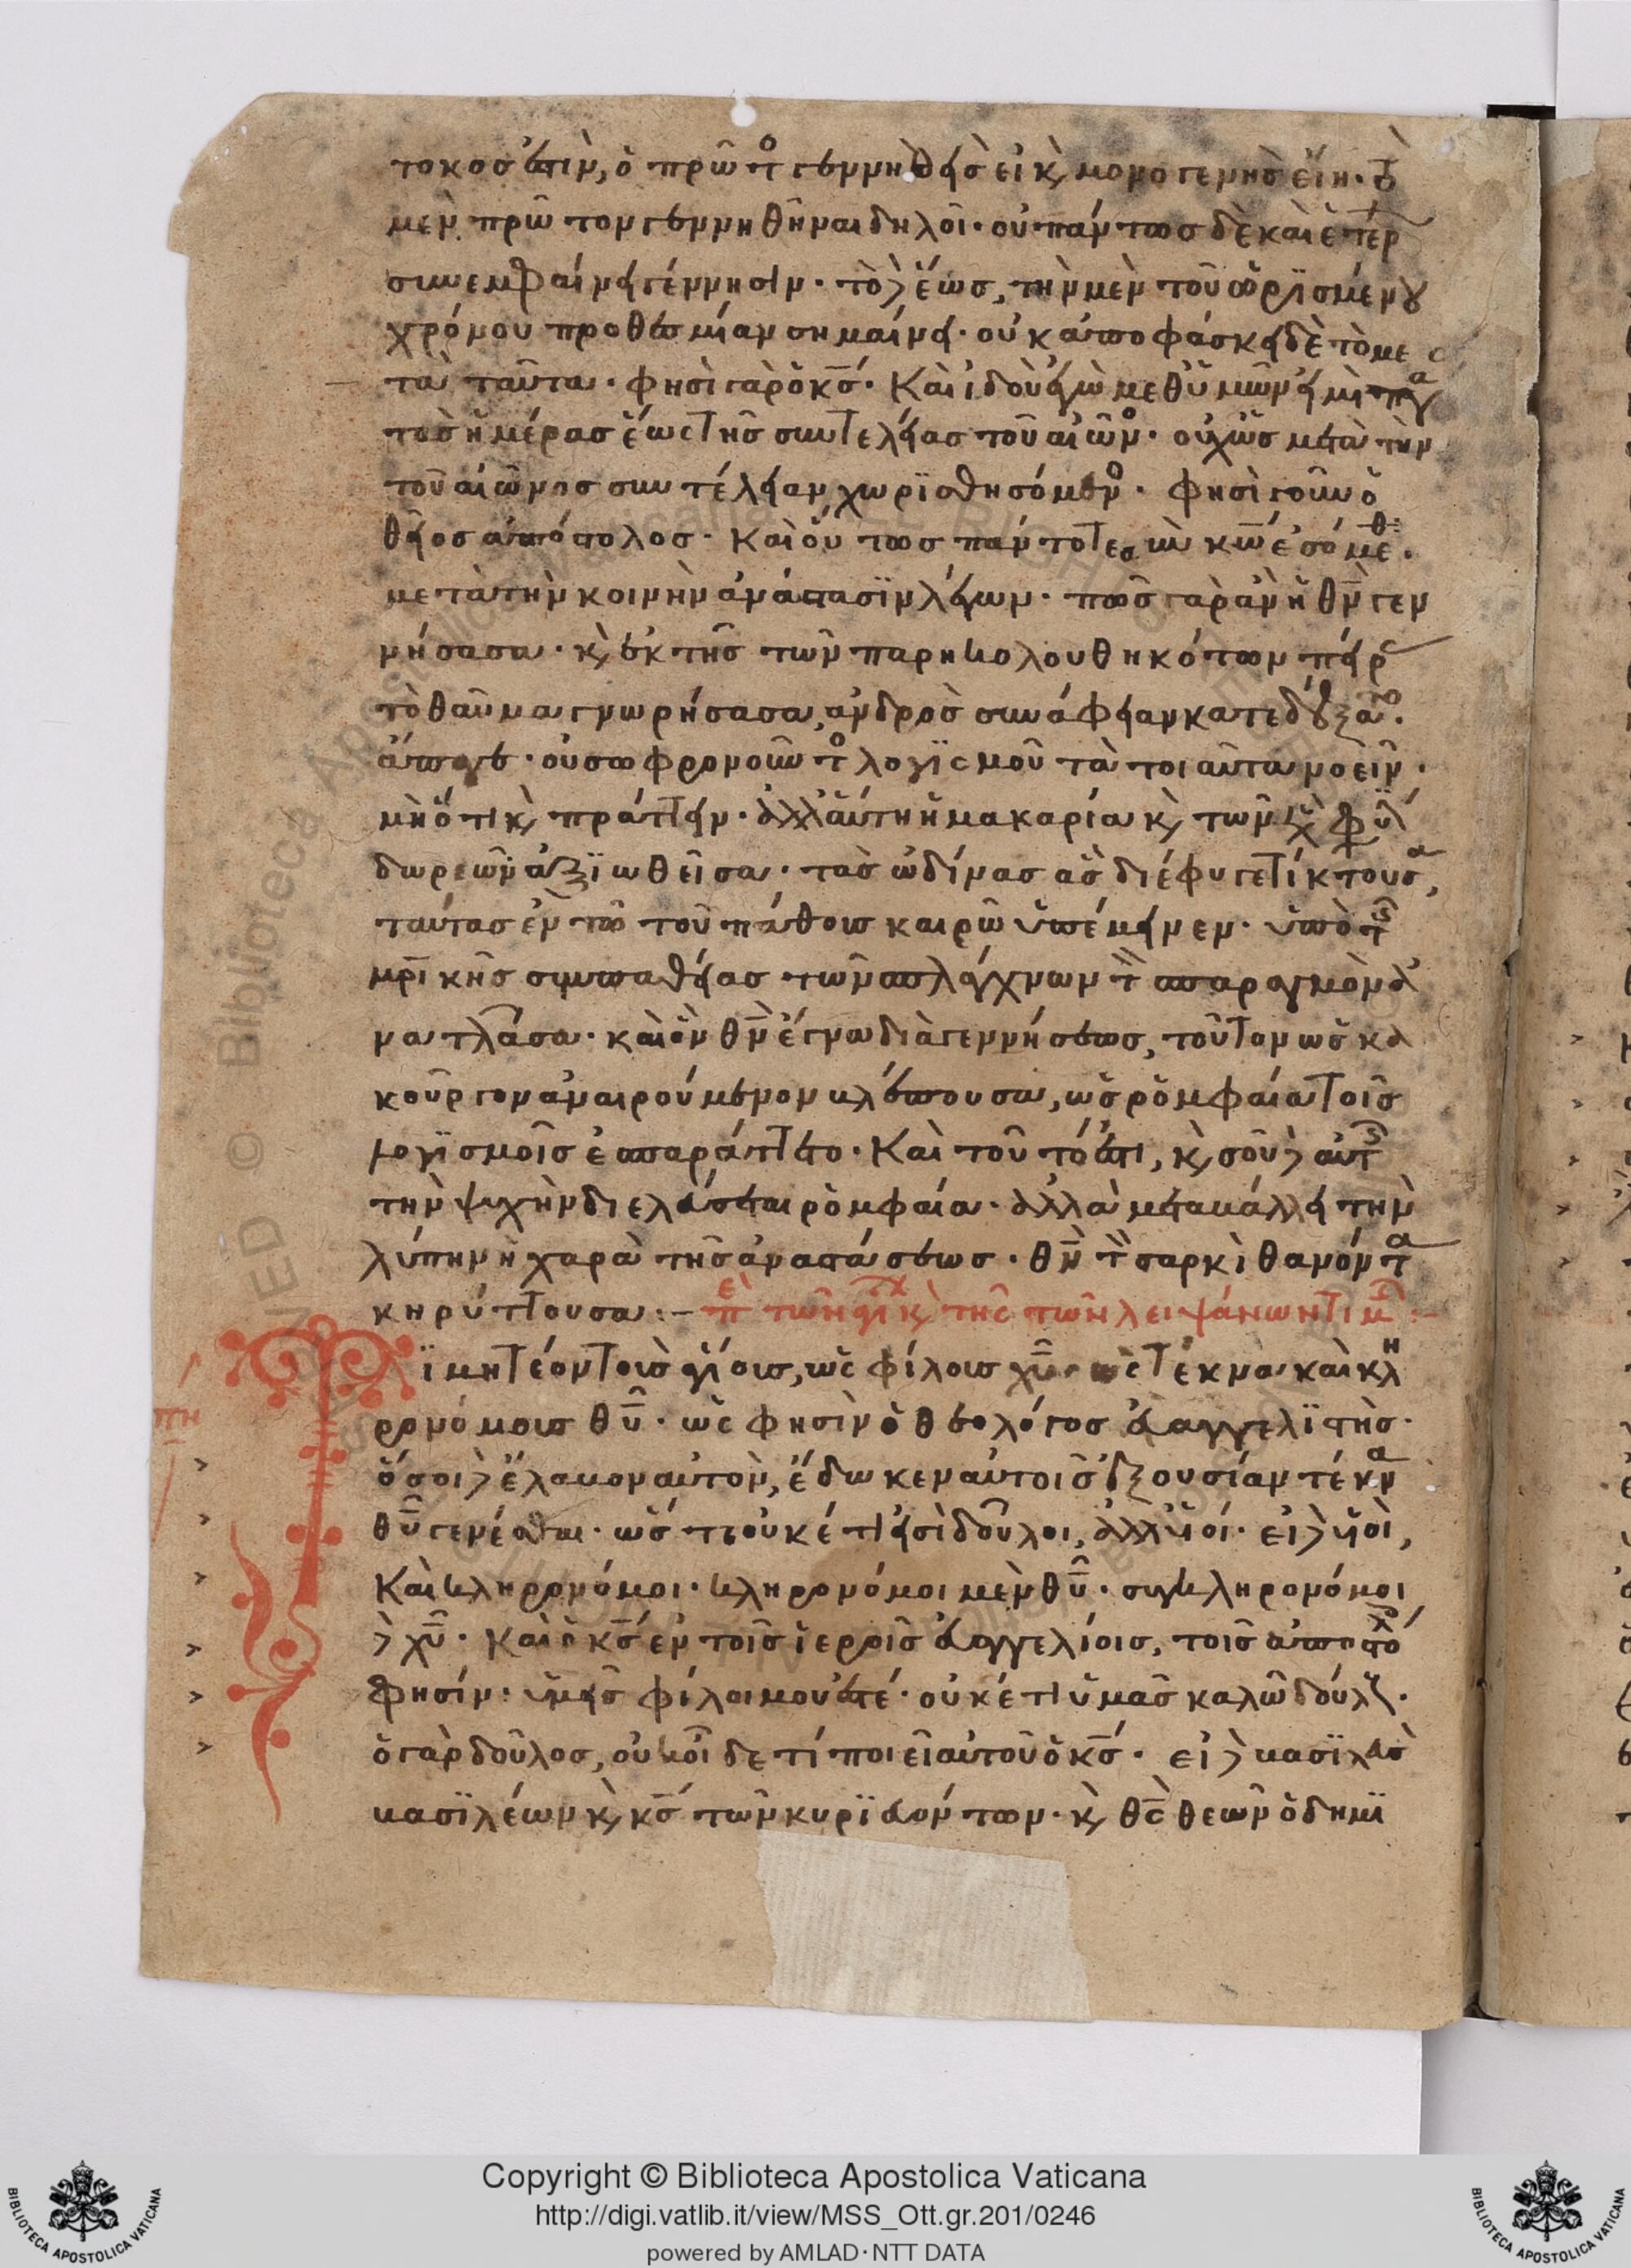 τοκος ἐστὶν, ὁ πρῶτ γεννηθεὶς εἰ κ μονογενὴς εἴη· τὸ
μὲν πρῶτον γεννηθῆναι δηλοῖ· οὐ πάντως δὲ καὶ ἑτέρ
συνεμφαίνει γέννησιν· τὸ δὲ ἕως, τὴν μὲν τοῦ ὡρϊσμένου
χρόνου προθεσμίαν σημαίνει· οὐκ ἀποφάσκει δὲ τὸ με
τὰ ταῦτα· φησὶ γὰρ ὁ κς· Καὶ ἰδοὺ ἐγὼ μεθ' ὑμῶν εἰμὶ πα
τὰς ἡμέρας ἕως τῆς συντελείας τοῦ αἰῶνο· οὐχ ὡς μετὰ τὴν
τοῦ αἰῶνος συντέλειαν χωρϊσθησόμενο· φησὶ γοῦν ὁ
θεῖος ἀπόστολος· Καὶ οὕτως πάντοτε σὺν κω ἐσόμεθ·
μετὰ τὴν κοινὴν ἀνάστασϊν λέγων· πῶς γὰρ ἂν ἡ θν γεν
νήσασα· κ ἐκ τῆς τῶν παρηκολουθηκότων πείρ
τὸ θαῦμα γνωρήσασα, ἀνδρὸς συνάφειαν κατεδέξατο·
ἄπαγε· οὐ σωφρονούντ λογϊσμοῦ τὰ τοιαῦτα νοεῖν·
μὴ ὅτι κ πράττειν· ἀλλ' αὕτη ἡ μακαρία κ τῶν ὑπὲρ φύ
δωρεῶν ἀξϊωθεῖσα· τὰς ὠδίνας ἃς διέφυγε τίκτουσα,
ταύτας ἐν τῶ τοῦ πάθους καιρῶ ὑπέμεινεν· ὑπὸ τ
μρικῆς συμπαθείας τῶν σπλάγχνων τ σπαραγμὸν ἀ
νατλᾶσα· καὶ ὃν θν ἔγνω διὰ γεννήσεως, τοῦτον ὡς κα
κοῦργον ἀναιρούμενον βλέπουσα, ὡς ῥομφαία τοῖς
λογϊσμοῖς ἐσπαράττετο· Καὶ τοῦτό ἐστι, κ σοῦ δὲ αὐτ
τὴν ψυχὴν διελεύσεται ῥομφαία· ἀλλὰ μεταβάλλει τὴν
λύπην ἡ χαρὰ τῆς ἀναστάσεως· θν τ σαρκὶ θανόντα
κηρύττουσα:– πε τῶν αγι κ τῆς τῶν λειψάνων τιμ :–
ϊμητέον τοὺς ἁγίους, ὡς φίλους χυ ὡς τέκνα καὶ κλη
ρονόμους θυ· ὡς φησὶν ὁ θεολόγος εὐαγγελϊστὴς·
ὅσοι δὲ ἔλαβον αὐτὸν, ἔδωκεν αὐτοῖς ἐξουσίαν τέκνα
θυ γενέσθαι· ὥστε οὐκέτι εἰσὶ δοῦλοι, ἀλλ' υἱοί· εἰ δὲ υἱοὶ,
Καὶ κληρονόμοι· κληρονόμοι μὲν θυ· συγκληρονόμοι
δὲ χυ· Καὶ ὁ κς ἐν τοῖς ἱεροῖς εὐαγγελίοις, τοῖς ἀποστό
φησίν· ὑμεῖς φίλοι μου ἐστέ· οὐκέτι ὑμᾶς καλῶ δούλους·
ὁ γὰρ δοῦλος, οὐκ οἶδε τί ποιεῖ αὐτοῦ ὁ κς· εἰ δὲ βασϊλεὺς
βασϊλέων κ κς τῶν κυρϊευόντων· κ θς θεῶν ὁ δημϊ
πη
Copyright © Biblioteca Apostolica Vaticana
http://digi.vatlib.it/view/MSS_Ott.gr.201/0246
powered by AMLAD·NTT DATA
BIBLIOTECA APOSTOLICA VATICANA
BIBLIOTECA APOSTOLICA VATICANA